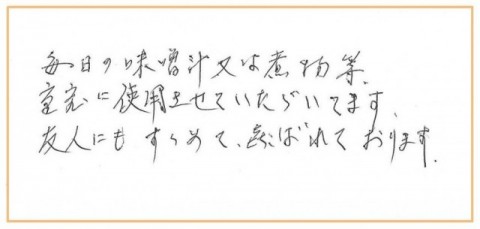 毎日の味噌汁又は煮物等、
重宝に使用させていただいてます、
友人にもすゝめて、喜ばれております。